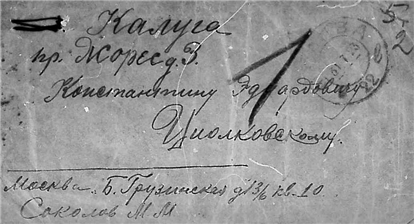 Калуга
пр. Жорес д. 3.
Константину Эдуардовичу
Циолковскому.
Москва. Б. Грузинская д 13/6 кв. 10
Соколов М М